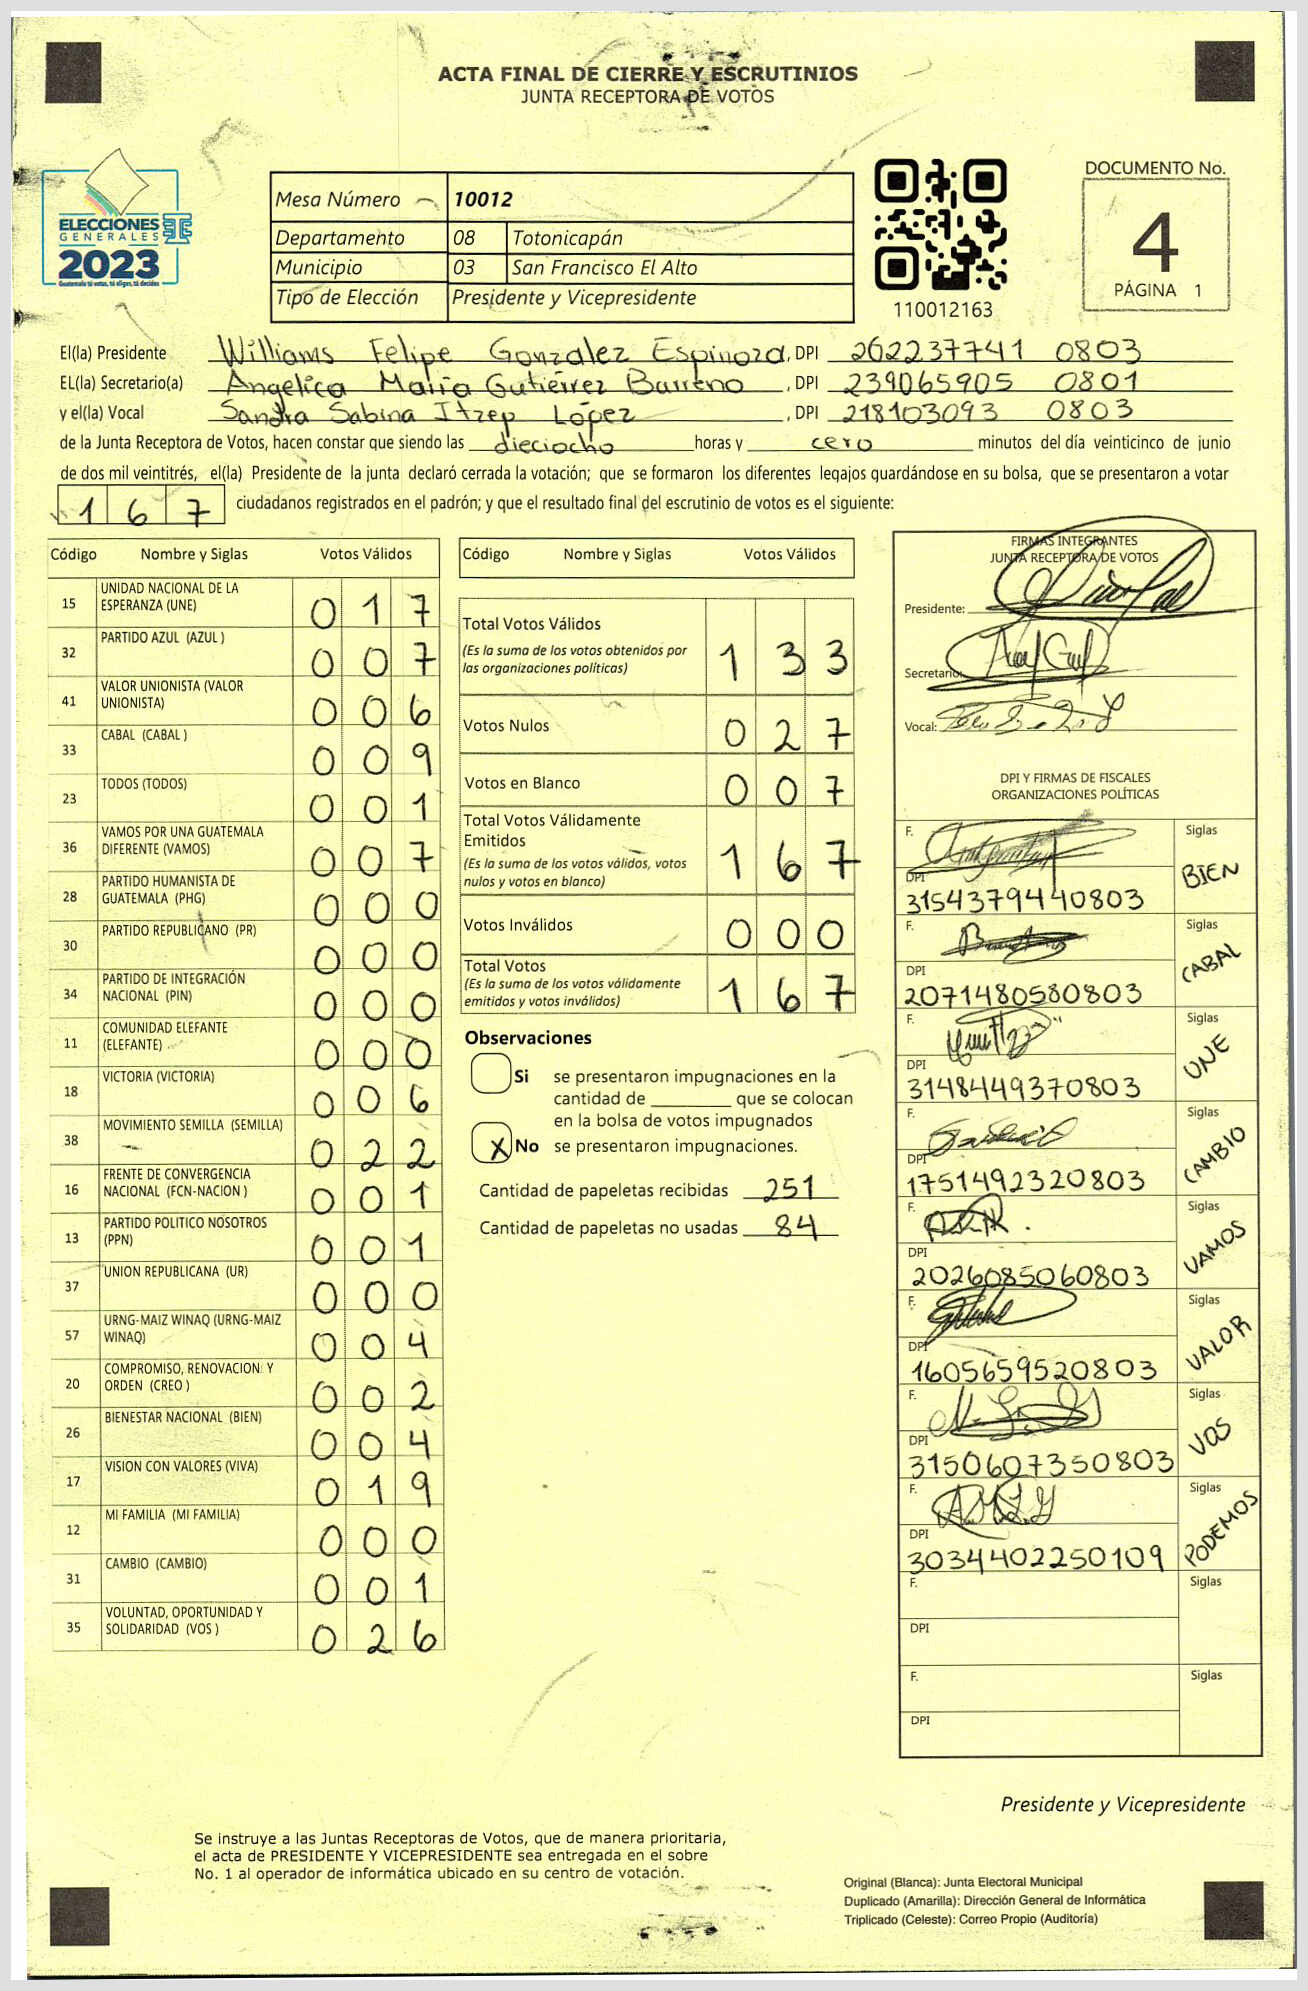 ACTA FINAL DE CIERRE Y ESCRUTINIOS
JUNTA RECEPTORA DE VOTOS
DOCUMENTO No.
4
PÁGINA 1
ELECCIONES
GENERALES
2023
Guatemala tú votas, tú eliges, tú decides
Mesa Número 10012
Departamento 08 Totonicapán
Municipio 03 San Francisco El Alto
Tipo de Elección Presidente y Vicepresidente
110012163
El(la) Presidente Williams Felipe Gonzalez Espinoza, DPI 262237741 0803
EL(la) Secretario(a) Angelica María Gutiérrez Barreno, DPI 239065905 0801
y el(la) Vocal Sandra Sabina Itzep López, DPI 218103093 0803
de la Junta Receptora de Votos, hacen constar que siendo las dieciocho horas y cero minutos del día veinticinco de junio
de dos mil veintitrés, el(la) Presidente de la junta declaró cerrada la votación; que se formaron los diferentes legajos guardándose en su bolsa, que se presentaron a votar
167 ciudadanos registrados en el padrón; y que el resultado final del escrutinio de votos es el siguiente:
Código Nombre y Siglas Votos Válidos
15 UNIDAD NACIONAL DE LA ESPERANZA (UNE) 017
32 PARTIDO AZUL (AZUL ) 007
41 VALOR UNIONISTA (VALOR UNIONISTA) 006
33 CABAL (CABAL ) 009
23 TODOS (TODOS) 001
36 VAMOS POR UNA GUATEMALA DIFERENTE (VAMOS) 007
28 PARTIDO HUMANISTA DE GUATEMALA (PHG) 000
30 PARTIDO REPUBLICANO (PR) 000
34 PARTIDO DE INTEGRACIÓN NACIONAL (PIN) 000
11 COMUNIDAD ELEFANTE (ELEFANTE) 000
18 VICTORIA (VICTORIA) 006
38 MOVIMIENTO SEMILLA (SEMILLA) 022
16 FRENTE DE CONVERGENCIA NACIONAL (FCN-NACION ) 001
13 PARTIDO POLITICO NOSOTROS (PPN) 001
37 UNION REPUBLICANA (UR) 000
57 URNG-MAIZ WINAQ (URNG-MAIZ WINAQ) 004
20 COMPROMISO, RENOVACION Y ORDEN (CREO ) 002
26 BIENESTAR NACIONAL (BIEN) 004
17 VISION CON VALORES (VIVA) 019
12 MI FAMILIA (MI FAMILIA) 000
31 CAMBIO (CAMBIO) 001
35 VOLUNTAD, OPORTUNIDAD Y SOLIDARIDAD (VOS ) 026
Código Nombre y Siglas Votos Válidos
Total Votos Válidos 133
(Es la suma de los votos obtenidos por
las organizaciones políticas)
Votos Nulos 027
Votos en Blanco 007
Total Votos Válidamente
Emitidos 167
(Es la suma de los votos válidos, votos
nulos y votos en blanco)
Votos Inválidos 000
Total Votos 167
(Es la suma de los votos válidamente
emitidos y votos inválidos)
Observaciones
Si se presentaron impugnaciones en la
cantidad de ________ que se colocan
en la bolsa de votos impugnados
X No se presentaron impugnaciones.
Cantidad de papeletas recibidas 251
Cantidad de papeletas no usadas 84
FIRMAS INTEGRANTES
JUNTA RECEPTORA DE VOTOS
Presidente:
Secretario:
Vocal:
DPI Y FIRMAS DE FISCALES
ORGANIZACIONES POLÍTICAS
F. Siglas BIEN
DPI 3154379440803
F. Siglas CABAL
DPI 2071480580803
F. Siglas UNE
DPI 3148449370803
F. Siglas CAMBIO
DPI 1751492320803
F. Siglas VAMOS
DPI 2026085060803
F. Siglas VALOR
DPI 1605659520803
F. Siglas VOS
DPI 3150607350803
F. Siglas PODEMOS
DPI 3034402250109
F. Siglas
DPI
F. Siglas
DPI
Presidente y Vicepresidente
Se instruye a las Juntas Receptoras de Votos, que de manera prioritaria,
el acta de PRESIDENTE Y VICEPRESIDENTE sea entregada en el sobre
No. 1 al operador de informática ubicado en su centro de votación.
Original (Blanca): Junta Electoral Municipal
Duplicado (Amarilla): Dirección General de Informática
Triplicado (Celeste): Correo Propio (Auditoría)